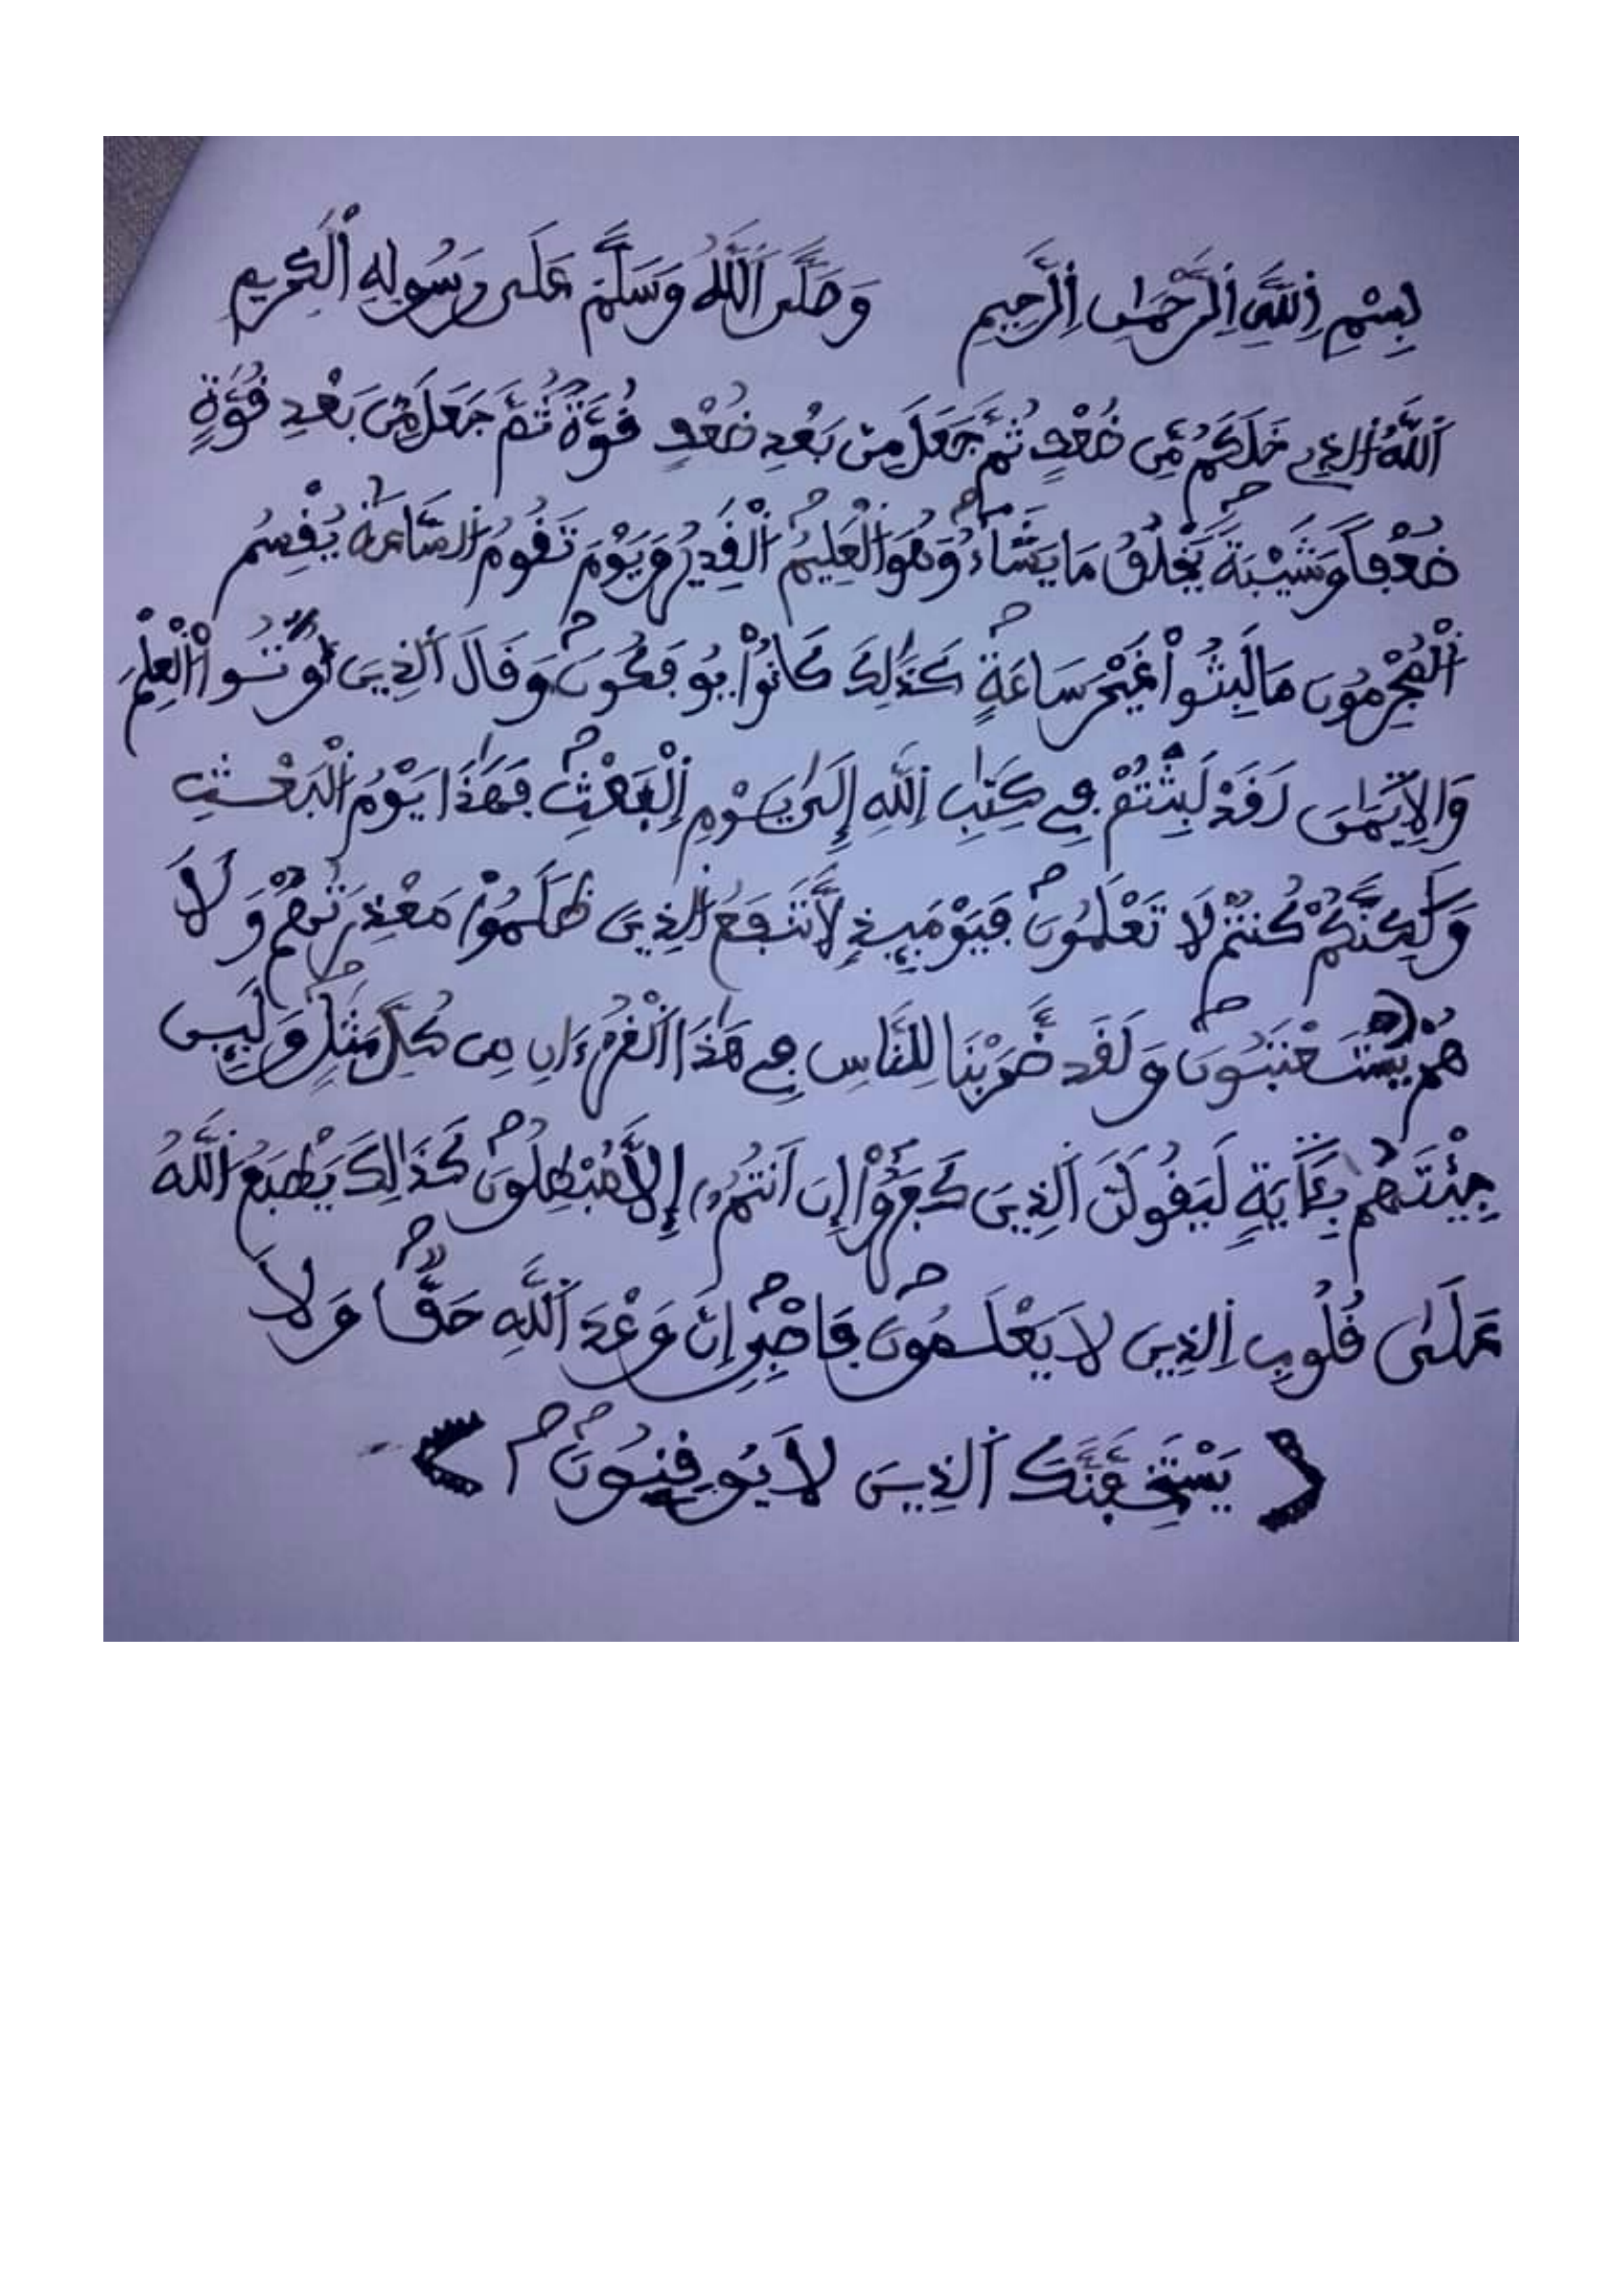 بِسْمِ اِللَّهِ اِلرَّحْمَٰنِ اِلرَّحِيمِ وَصَلَّى اَللَّهُ وَسَلَّمَ عَلَى رَسُولِهِ اِلْكَرِيمِ
اَللَّهُ اُلذِے خَلَكُم مِّن ضُعْفٍ ثُمَّ جَعَلَ مِنۢ بَعْدِ ضُعْفٍ قُوَّةً ثُمَّ جَعَلَ مِنۢ بَعْدِ قُوَّةٍ
ضُعْفاً وَشَيْبَةً يَخْلُقُ مَا يَشَآءُ وَهُوَ اَلْعَلِيمُ اُلْقَدِيرُ وَيَوْمَ تَقُومُ اُلسَّاعَةُ يُقْسِمُ
اُلْمُجْرِمُونَ مَا لَبِثُواْ غَيْرَ سَاعَةٍ كَذَٰلِكَ كَانُواْ يُوفَكُونَ وَقَالَ اَلذِينَ أُوتُوا اْلْعِلْمَ
وَالِايمَٰنَ لَقَدْ لَبِثْتُمْ فِے كِتَٰبِ اِللَّهِ إِلَىٰ يَوْمِ اِلْبَعْثِ فَهَٰذَا يَوْمُ اُلْبَعْثِ
وَلَٰكِنَّكُمْ كُنتُمْ لَا تَعْلَمُونَ فَيَوْمَئِذٍ لَّا تَنفَعُ اُلذِينَ ظَلَمُواْ مَعْذِرَتُهُمْ وَلَا
هُمْ يُسْتَعْتَبُونَ وَلَقَد ضَّرَبْنَا لِلنَّاسِ فِے هَٰذَا اَلْقُرْءَانِ مِن كُلِّ مَثَلٍ وَلَئِن
جِئْتَهُم بِـَٔايَةٍ لَيَقُولَنَّ اَلذِينَ كَفَرُوٓاْ إِنَ اَنتُمُۥٓ إِلَّا مُبْطِلُونَ كَذَٰلِكَ يَطْبَعُ اُللَّهُ
عَلَىٰ قُلُوبِ اِلذِينَ لَا يَعْلَمُونَ فَاصْبِرِ اِنَّ وَعْدَ اَللَّهِ حَقٌّ وَلَا
يَسْتَخِفَّنَّكَ اَلذِينَ لَا يُوقِنُونَ